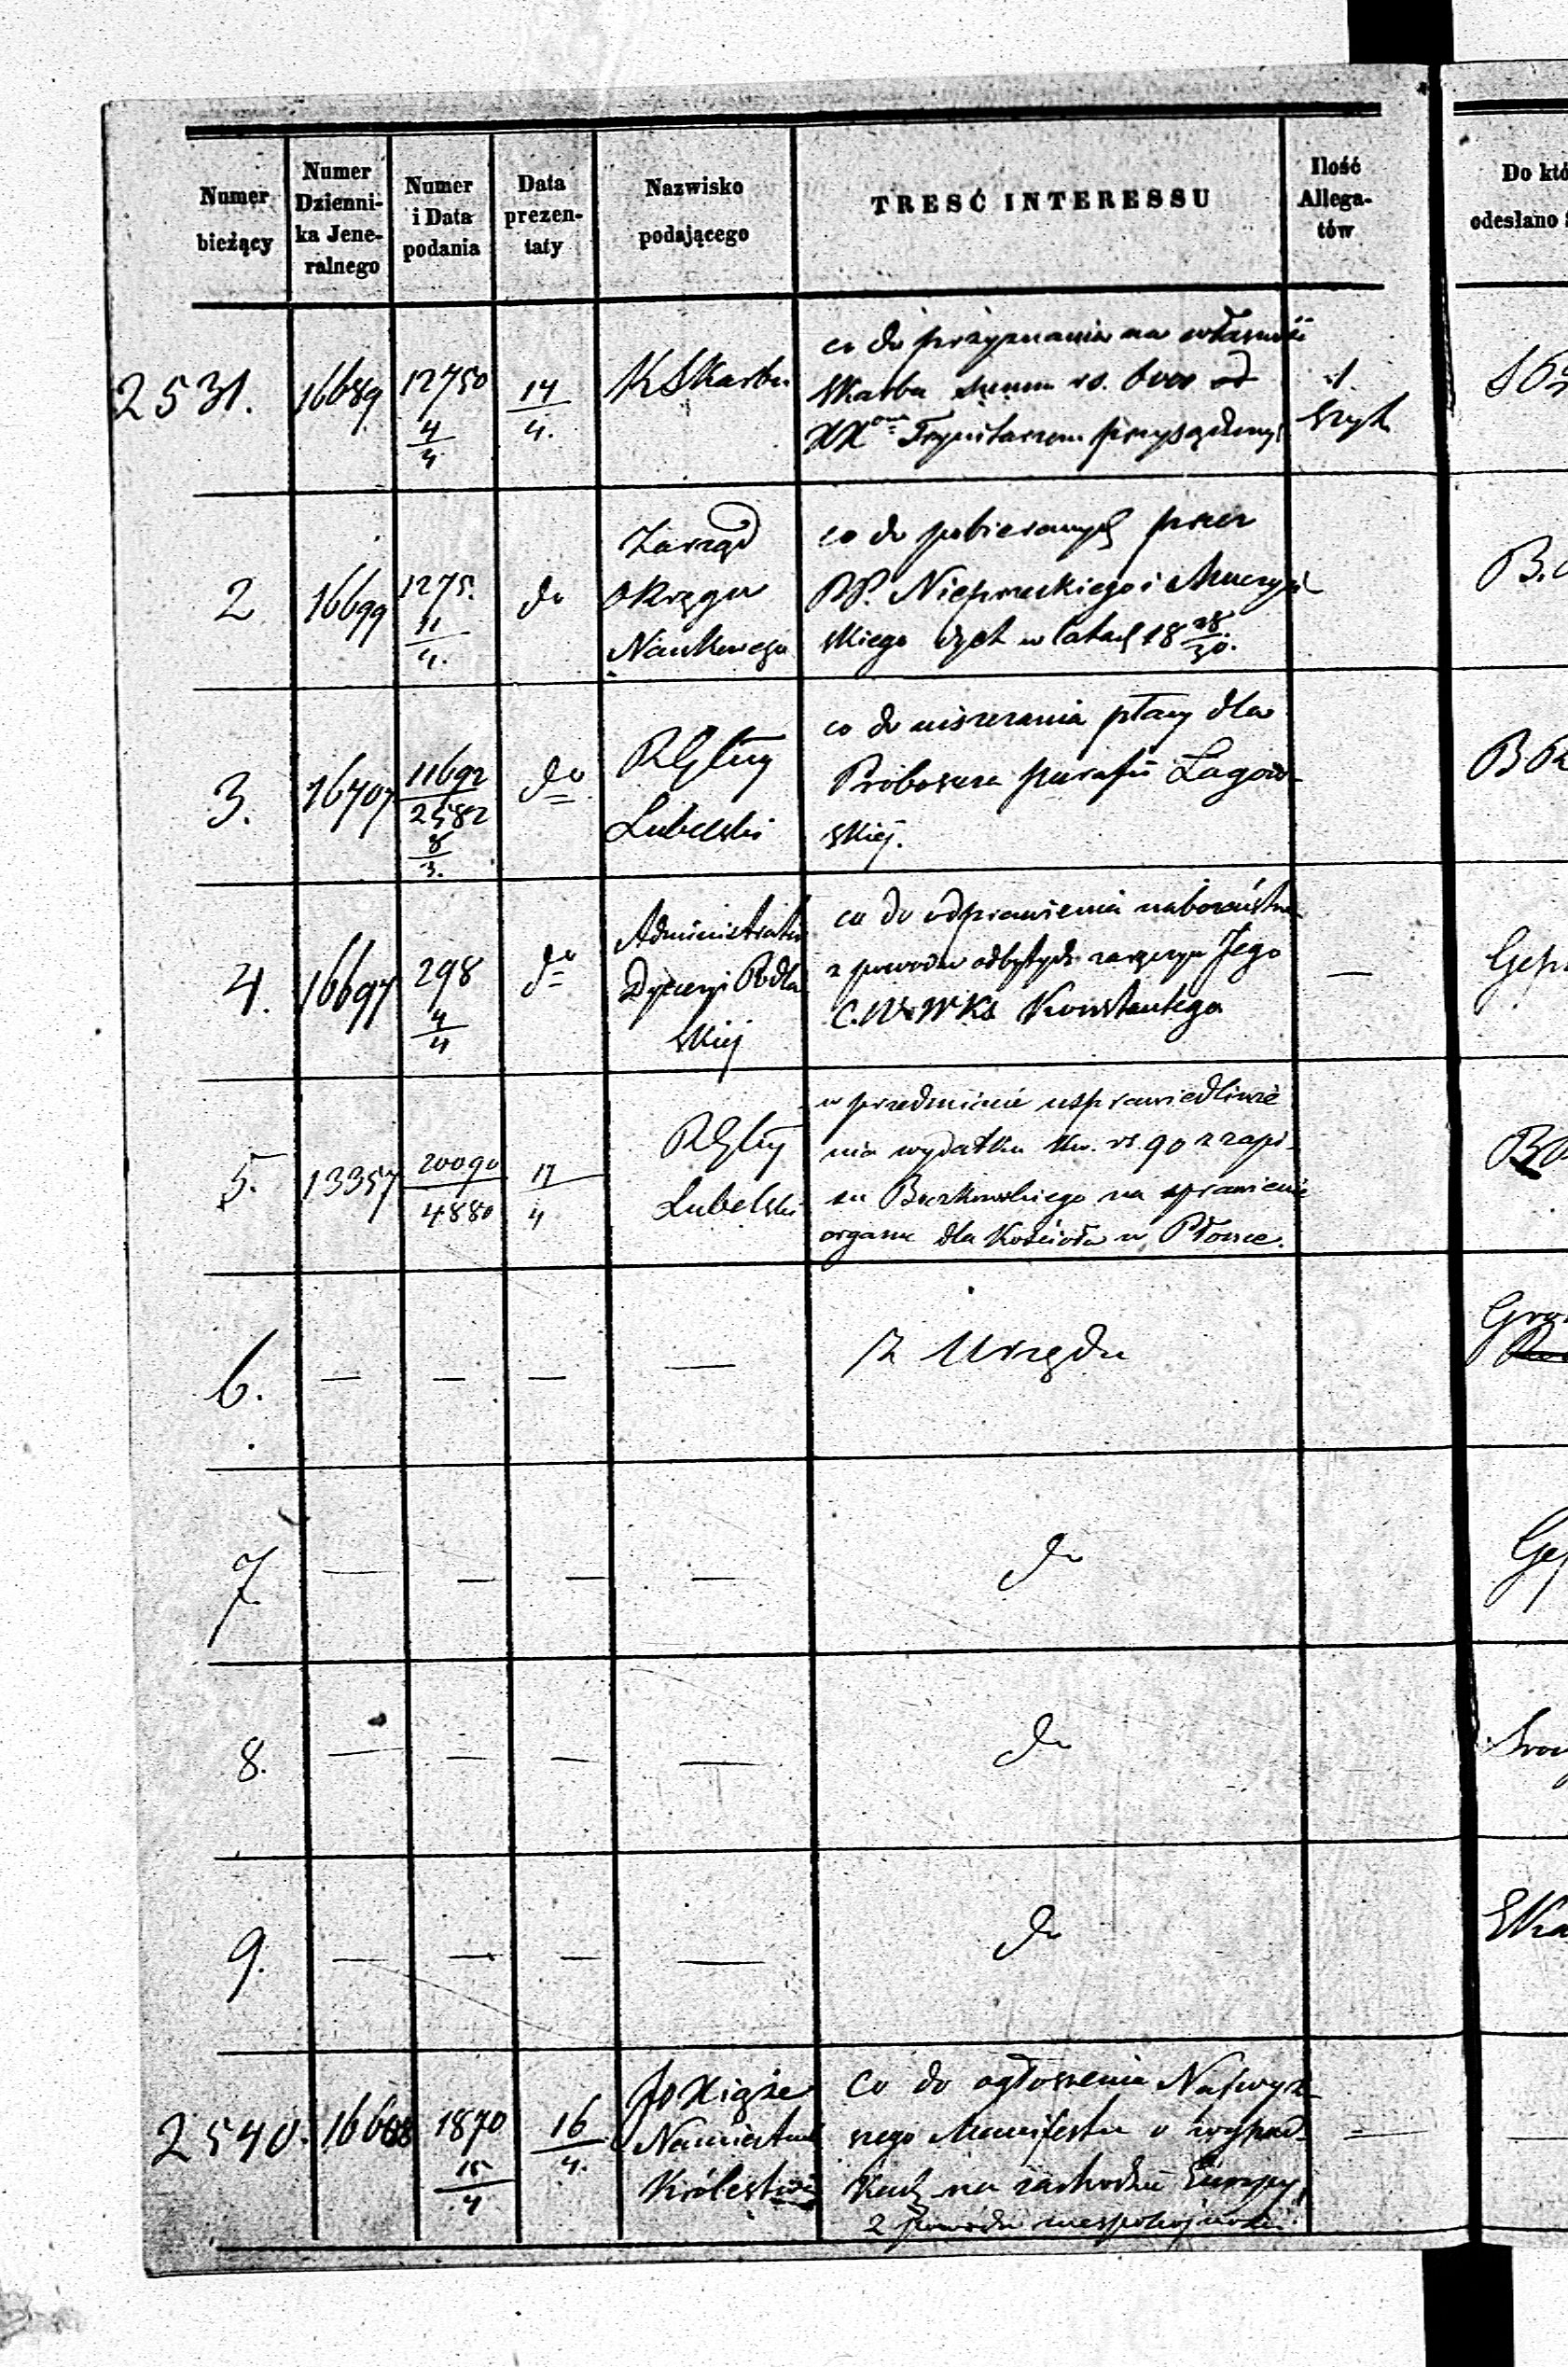 Numer bieżący
Numer Dzienni- ka Jene- ralnego
Numer i Data podania
Data prezen- taty
Nazwisko podającego
TRESĆ INTERESSU
Ilość Allega- tów
Do któ
odesłano
2531.
16689
12750
4
4
14
4.
K Skarbu
co do przyznania na własność
Skarbu summ rs. 6000 od
XX Trynitarzom przysądzonej
1
szyt
2
16699
1275.
11
4.
do
Zarząd
Okręgu
Naukowego
co do pobieranych przez
PP.
skiego w latach 18 28/30.
B.
3.
16707
11692
2582
8
3.
do
RGlny
Lubelski
co do uiszczania płacy dla
Proboszcza parafii Łagow-
skiej.
4.
16697
298
4
4
do
Administrator
Dyecezyi Podla
skiej
co do odprawienia nabożeństwa
z powodu odbytych zaręczyn Jego
C. W. W Ks Konstantego
—
5.
13357
20090
4880
17
4
RGlny
Lubelski
w przedmiocie usprawiedliwie
nia wydatku kw. rs. 90 z zapi-
su Boczkowskiego na sprawienie
organu dla Kościoła w Płonce.
6.
—
—
—
—
Z Urzędu
7.
—
—
—
—
do
8.
—
—
—
—
do
9.
—
—
—
—
do
2540.
16668
1870
15
4
16
4.
JO Xiąże
Namiestnik
Królestwa
Co do ogłoszenia Najwyż-
szego Manifestu o wypad-
kach na zachodzie Europy
z powodu niespokojności.